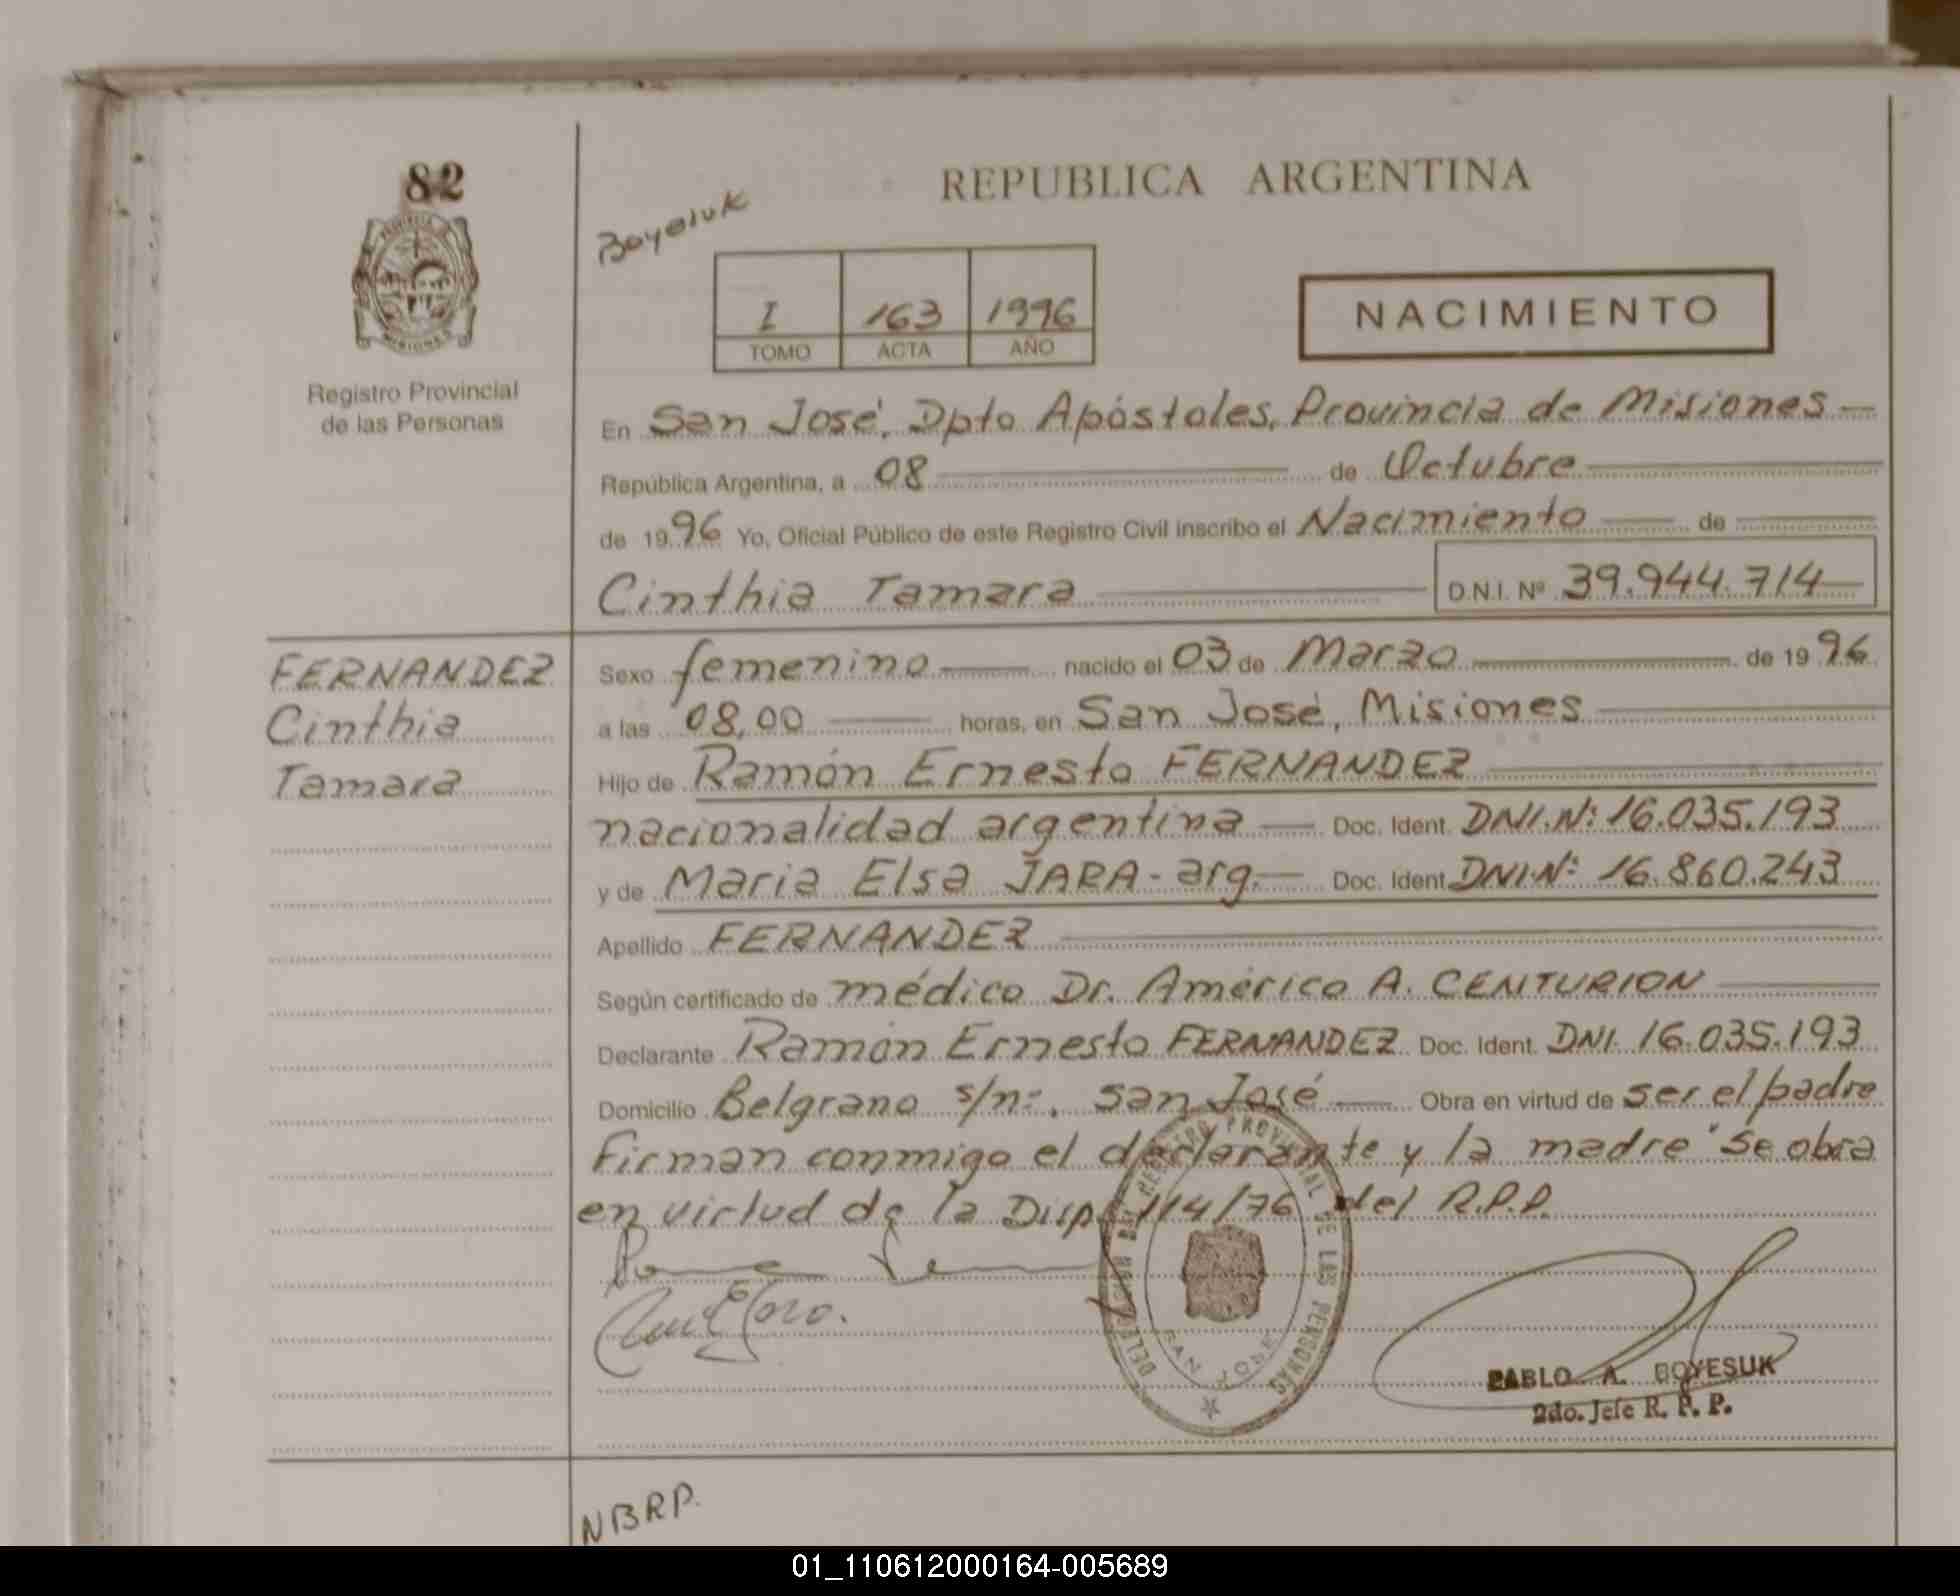 82
REPUBLICA ARGENTINA
Boyesuk
PROVINCIA DE
MISIONES
I 163 1996
TOMO ACTA AÑO
NACIMIENTO
Registro Provincial
de las Personas
En San José, Dpto Apóstoles, Provincia de Misiones —
República Argentina, a 08 — de Octubre —
de 1996 Yo, Oficial Público de este Registro Civil inscribo el Nacimiento — de —
Cinthia Tamara — D.N.I. Nº 39.944.714 —
FERNANDEZ
Cinthia
Tamara
Sexo femenino — nacido el 03 de Marzo — de 1996
a las 08,00 — horas, en San José, Misiones —
Hijo de Ramón Ernesto FERNANDEZ —
nacionalidad argentina — Doc. Ident. DNI.Nº: 16.035.193
y de Maria Elsa JARA - arg. — Doc. Ident. DNI.Nº: 16.860.243
Apellido FERNANDEZ —
Según certificado de médico Dr. Américo A. CENTURION —
Declarante Ramón Ernesto FERNANDEZ Doc. Ident. DNI. 16.035.193
Domicilio Belgrano s/nº. San José — Obra en virtud de ser el padre
Firman conmigo el declarante y la madre "Se obra
en virtud de la Disp. 114/76 del R.P.P.
DELEGACION DEL REGISTRO PROVINCIAL DE LAS PERSONAS
SAN JOSE
PABLO A. BOYESUK
2do. Jefe R. P. P.
NBRP.
01_110612000164-005689